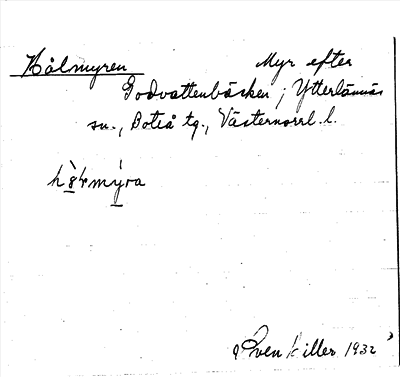 Hålmyren Myr efter
Godvattenbäcken i Ytterlännäs
sn., Boteå tg., Västernorrl. l.
Sven Hiller 1932